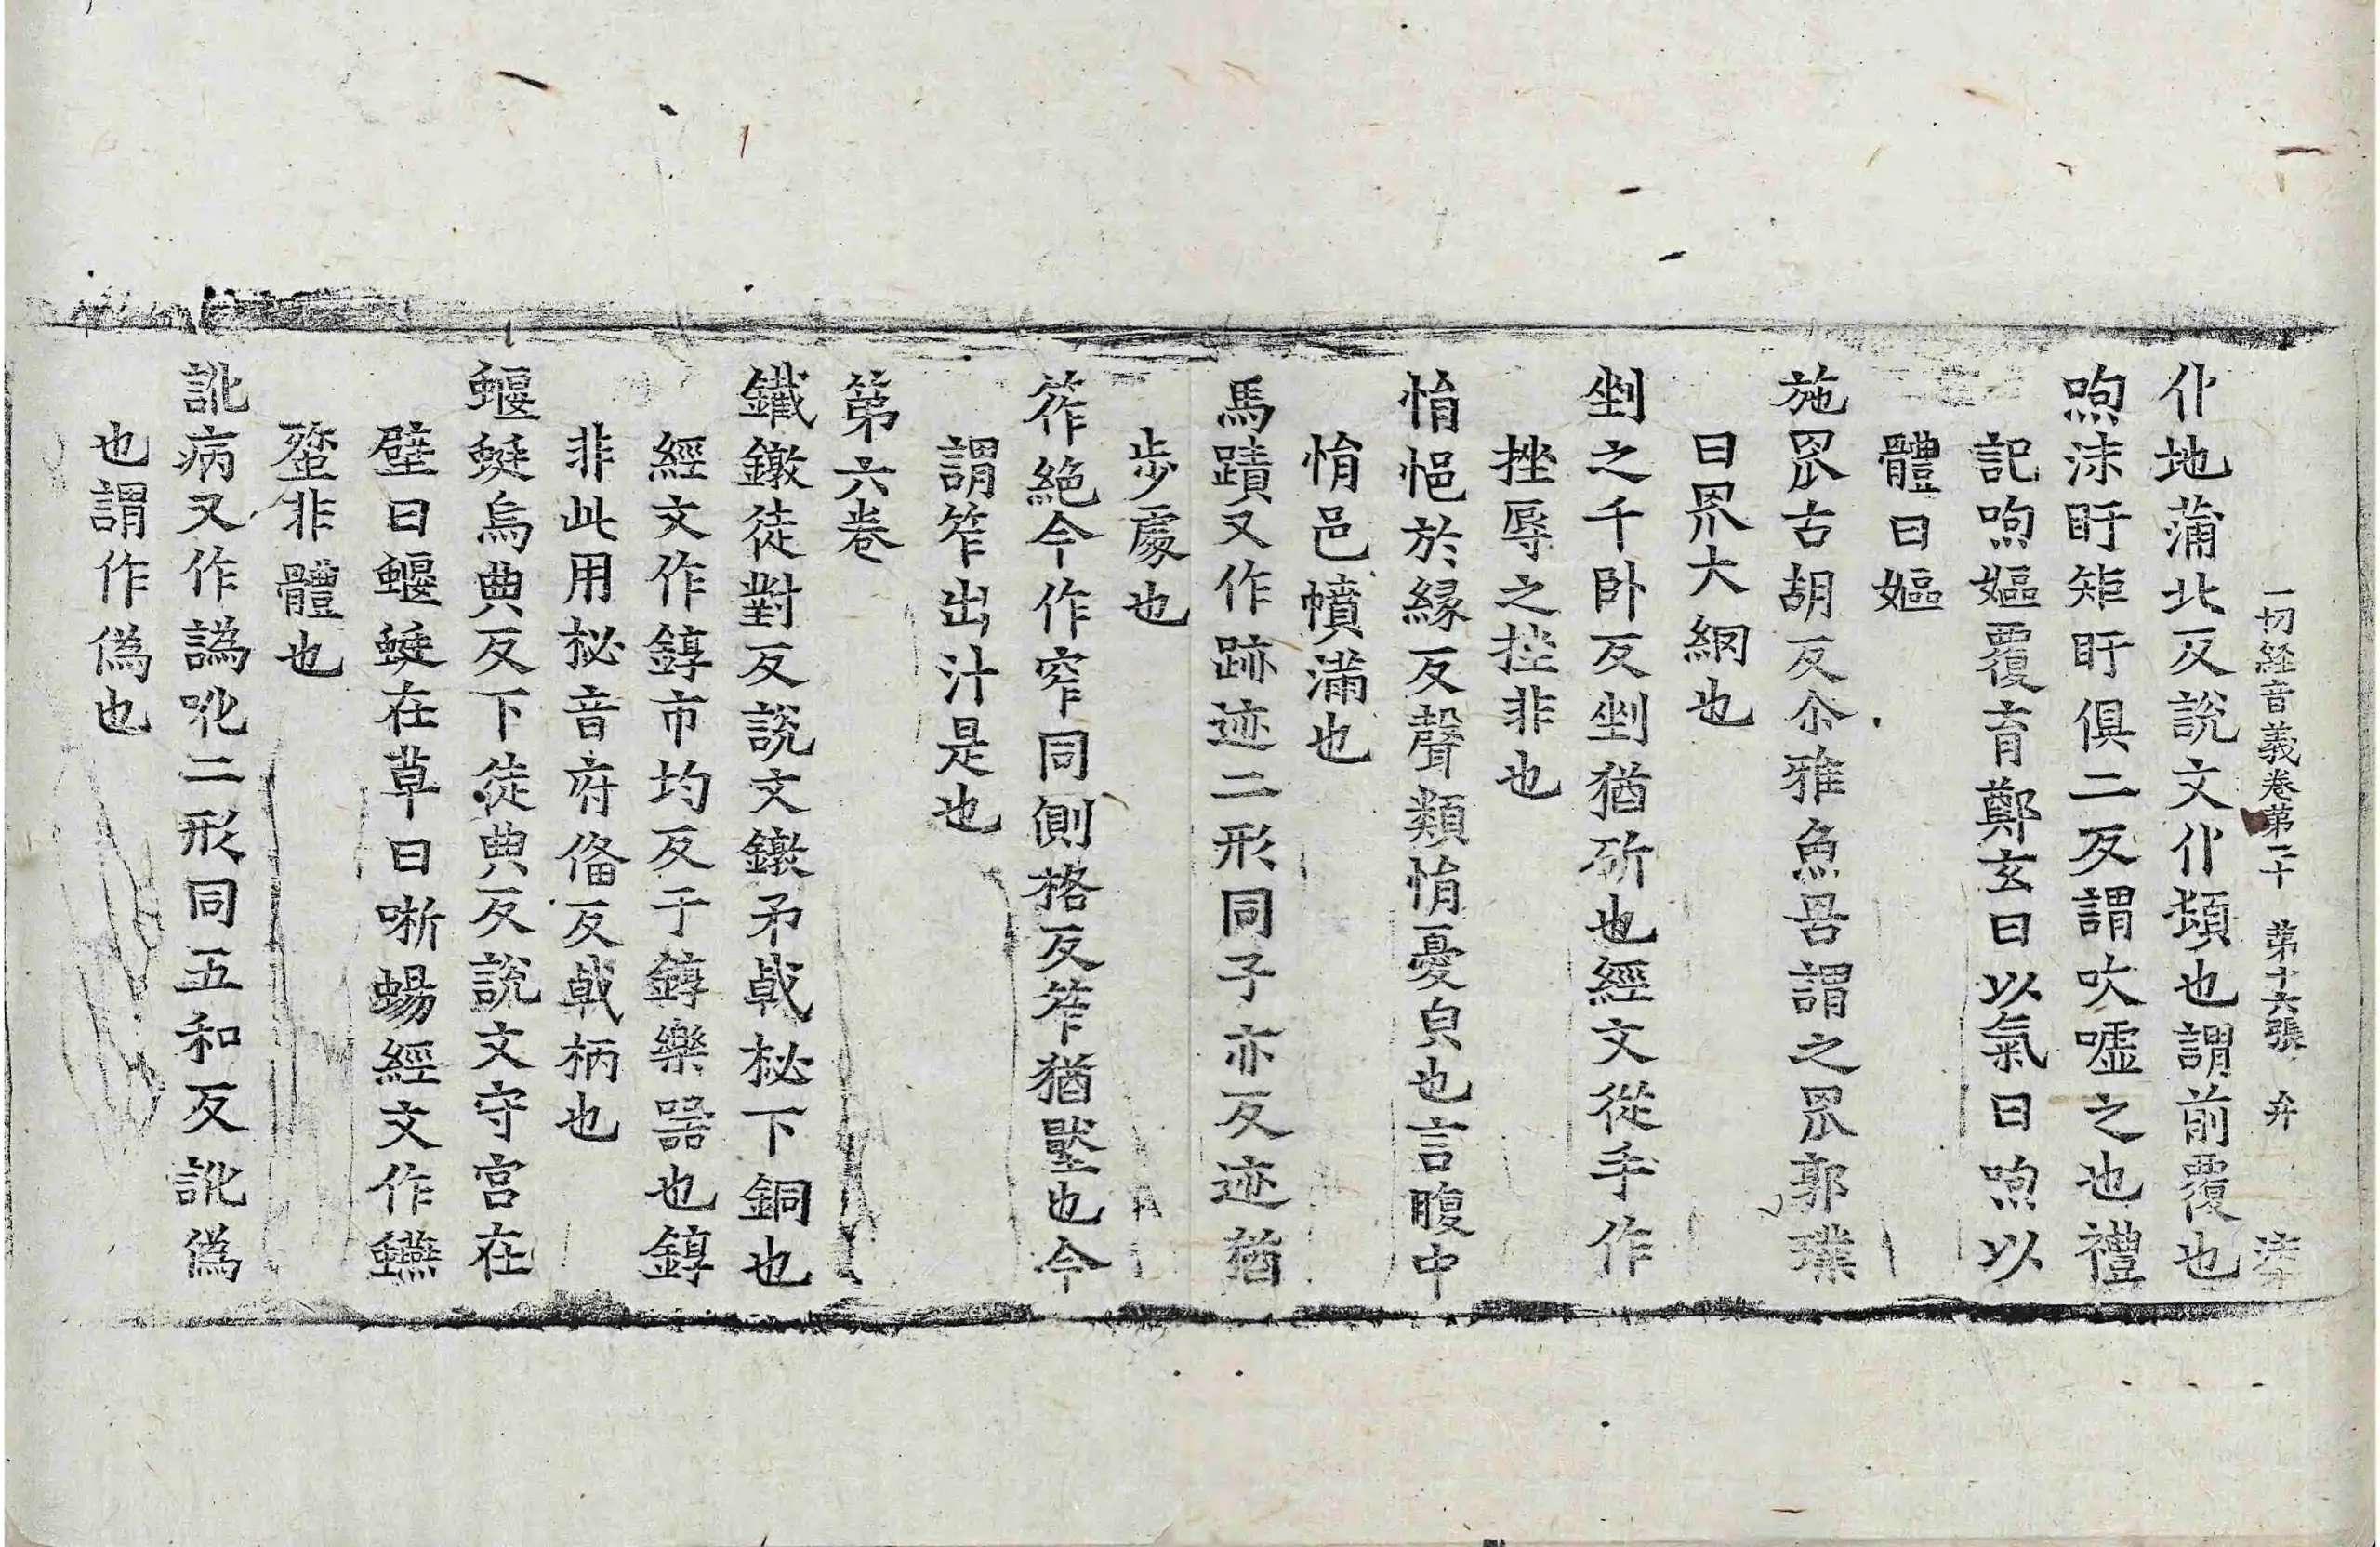 一切経音義卷第二十 第十六張 弁
仆地蒲北反說文仆頓也謂前覆也
喣沫盱矩盱俱二反謂吹噓之也禮
記喣嫗覆育鄭玄曰以氣曰喣以
體曰嫗
施罛古胡反尒雅魚罟謂之罛郭璞
曰罛大網也
剉之千卧反剉猶斫也經文從手作
挫辱之挫非也
悁悒於縁反聲類悁憂皃也言腹中
悁邑憤滿也
馬蹟又作跡迹二形同子亦反迹猶
步處也
笮絶今作窄同側格反笮猶壓也今
謂笮出汁是也
第六卷
鐵鐓徒對反說文鐓矛戟柲下銅也
經文作錞市均反于錞樂器也錞
非此用柲音府俻反戟柄也
蝘蜓烏典反下徒典反說文守宮在
壁曰蝘蜓在草曰蜥蜴經文作䗡
蝅非體也
訛病又作譌吪二形同五和反訛僞
也謂作僞也